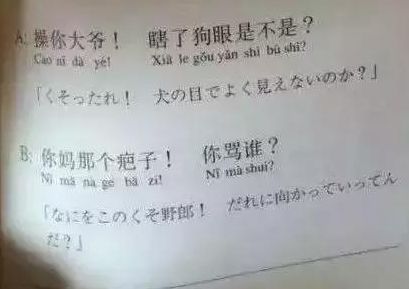 A: 操你大爷！ 瞎了狗眼是不是？
Cào nǐ dà yé! Xiā le gǒu yǎn shì bú shì?
「くそったれ！ 犬の目でよく見えないのか？」
B: 你妈那个疤子！ 你骂谁？
Nǐ mā nà ge bā zi! Nǐ mà shuí?
「なにをこのくそ野郎！ だれに向かっていってん
だ？」